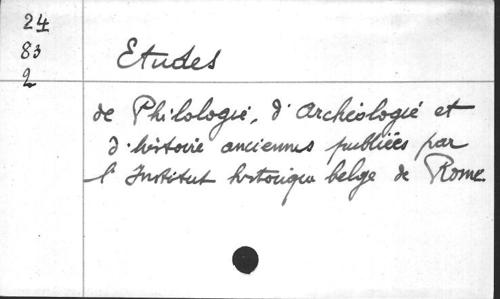 24
83
2
Etudes
de Philologie, d'Archéologie et
d'histoire anciennes publiées par
l'Institut historique belge de Rome.